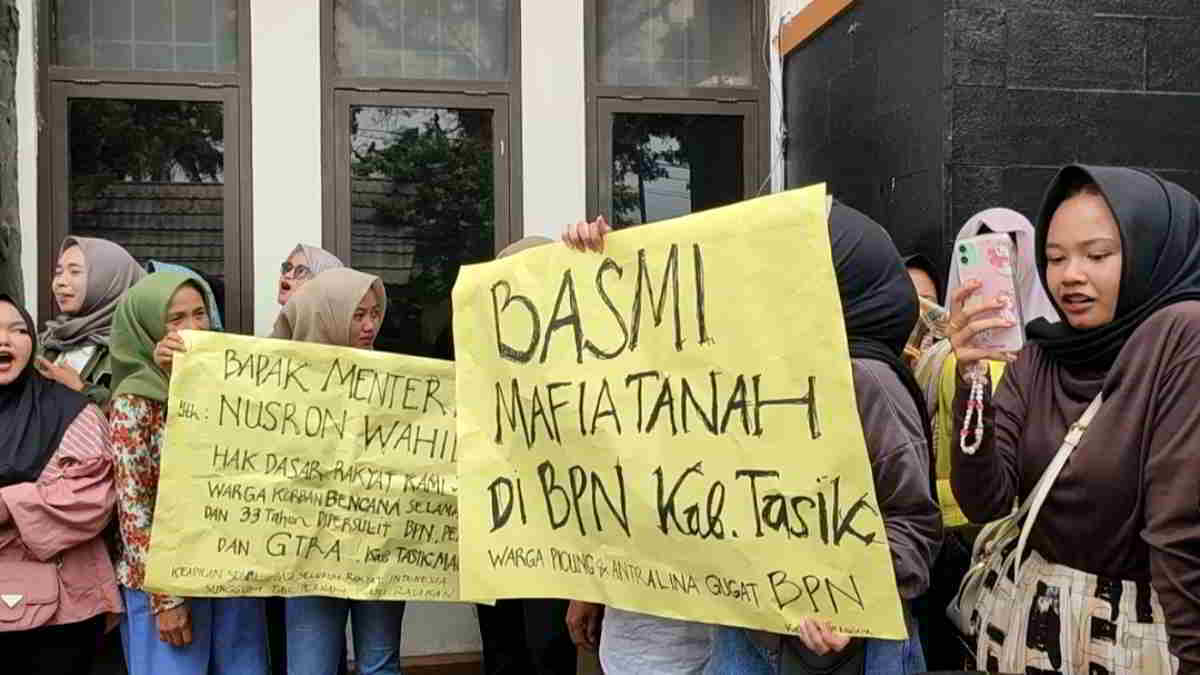 BAPAK MENTERI
Yth: NUSRON WAHID
HAK DASAR RAKYAT KAMI
WARGA KORBAN BENCANA SELAMA
DAN 33 Tahun DIPERSULIT BPN, PE
DAN GTRA. Kab TASIKMA
SELURUH RAKYAT INDONESIA
BASMI
MAFIA TANAH
Di BPN Kab. Tasik
WARGA PICUNG & ANTRALINA GUGAT BPN